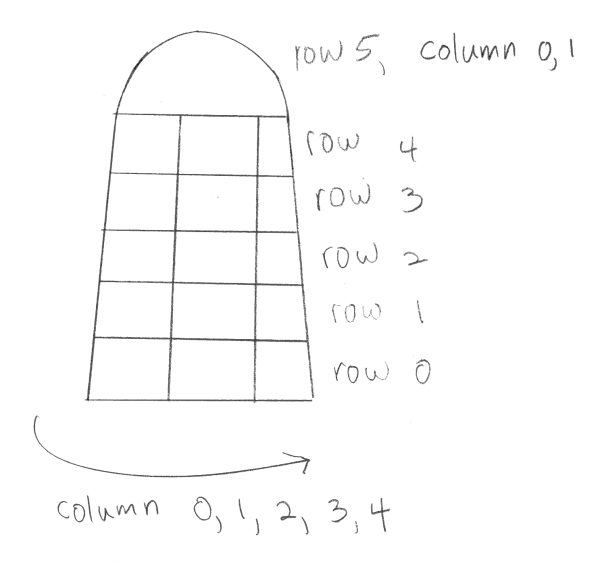 row 5, column 0, 1
row 4
row 3
row 2
row 1
row 0
column 0, 1, 2, 3, 4